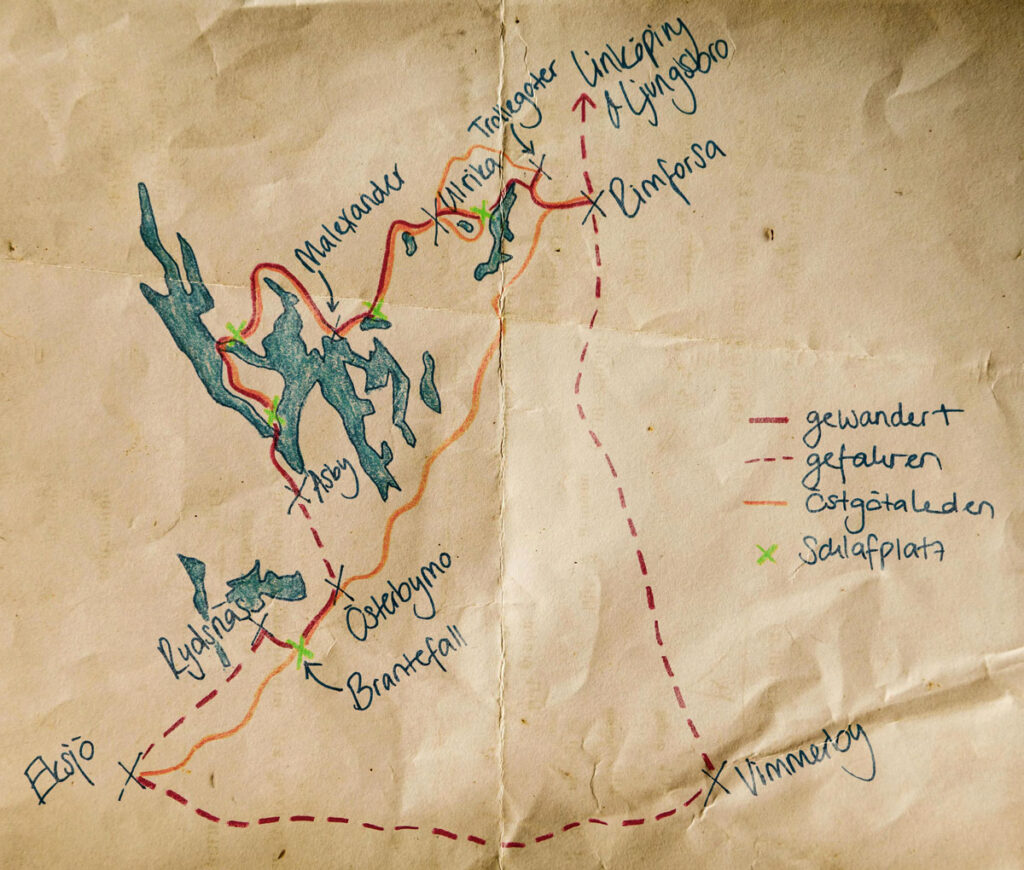 Linköping
& Ljungsbro
Trollegater
Ulrika
Rimforsa
Malexander
Asby
Österbymo
Rydsnäs
Brantefall
Eksjö
Vimmerby
gewandert
gefahren
Östgötaleden
Schlafplatz